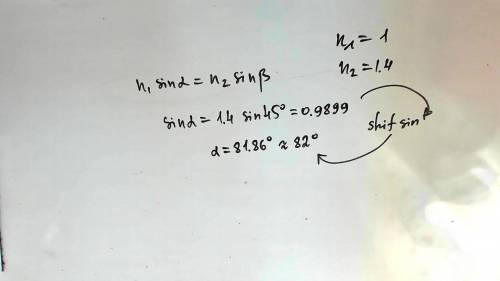 n₁ = 1
n₂ = 1.4
n₁ sinα = n₂ sinβ
sinα = 1.4 sin45° = 0.9899
shif sin
α = 81.86° ≈ 82°